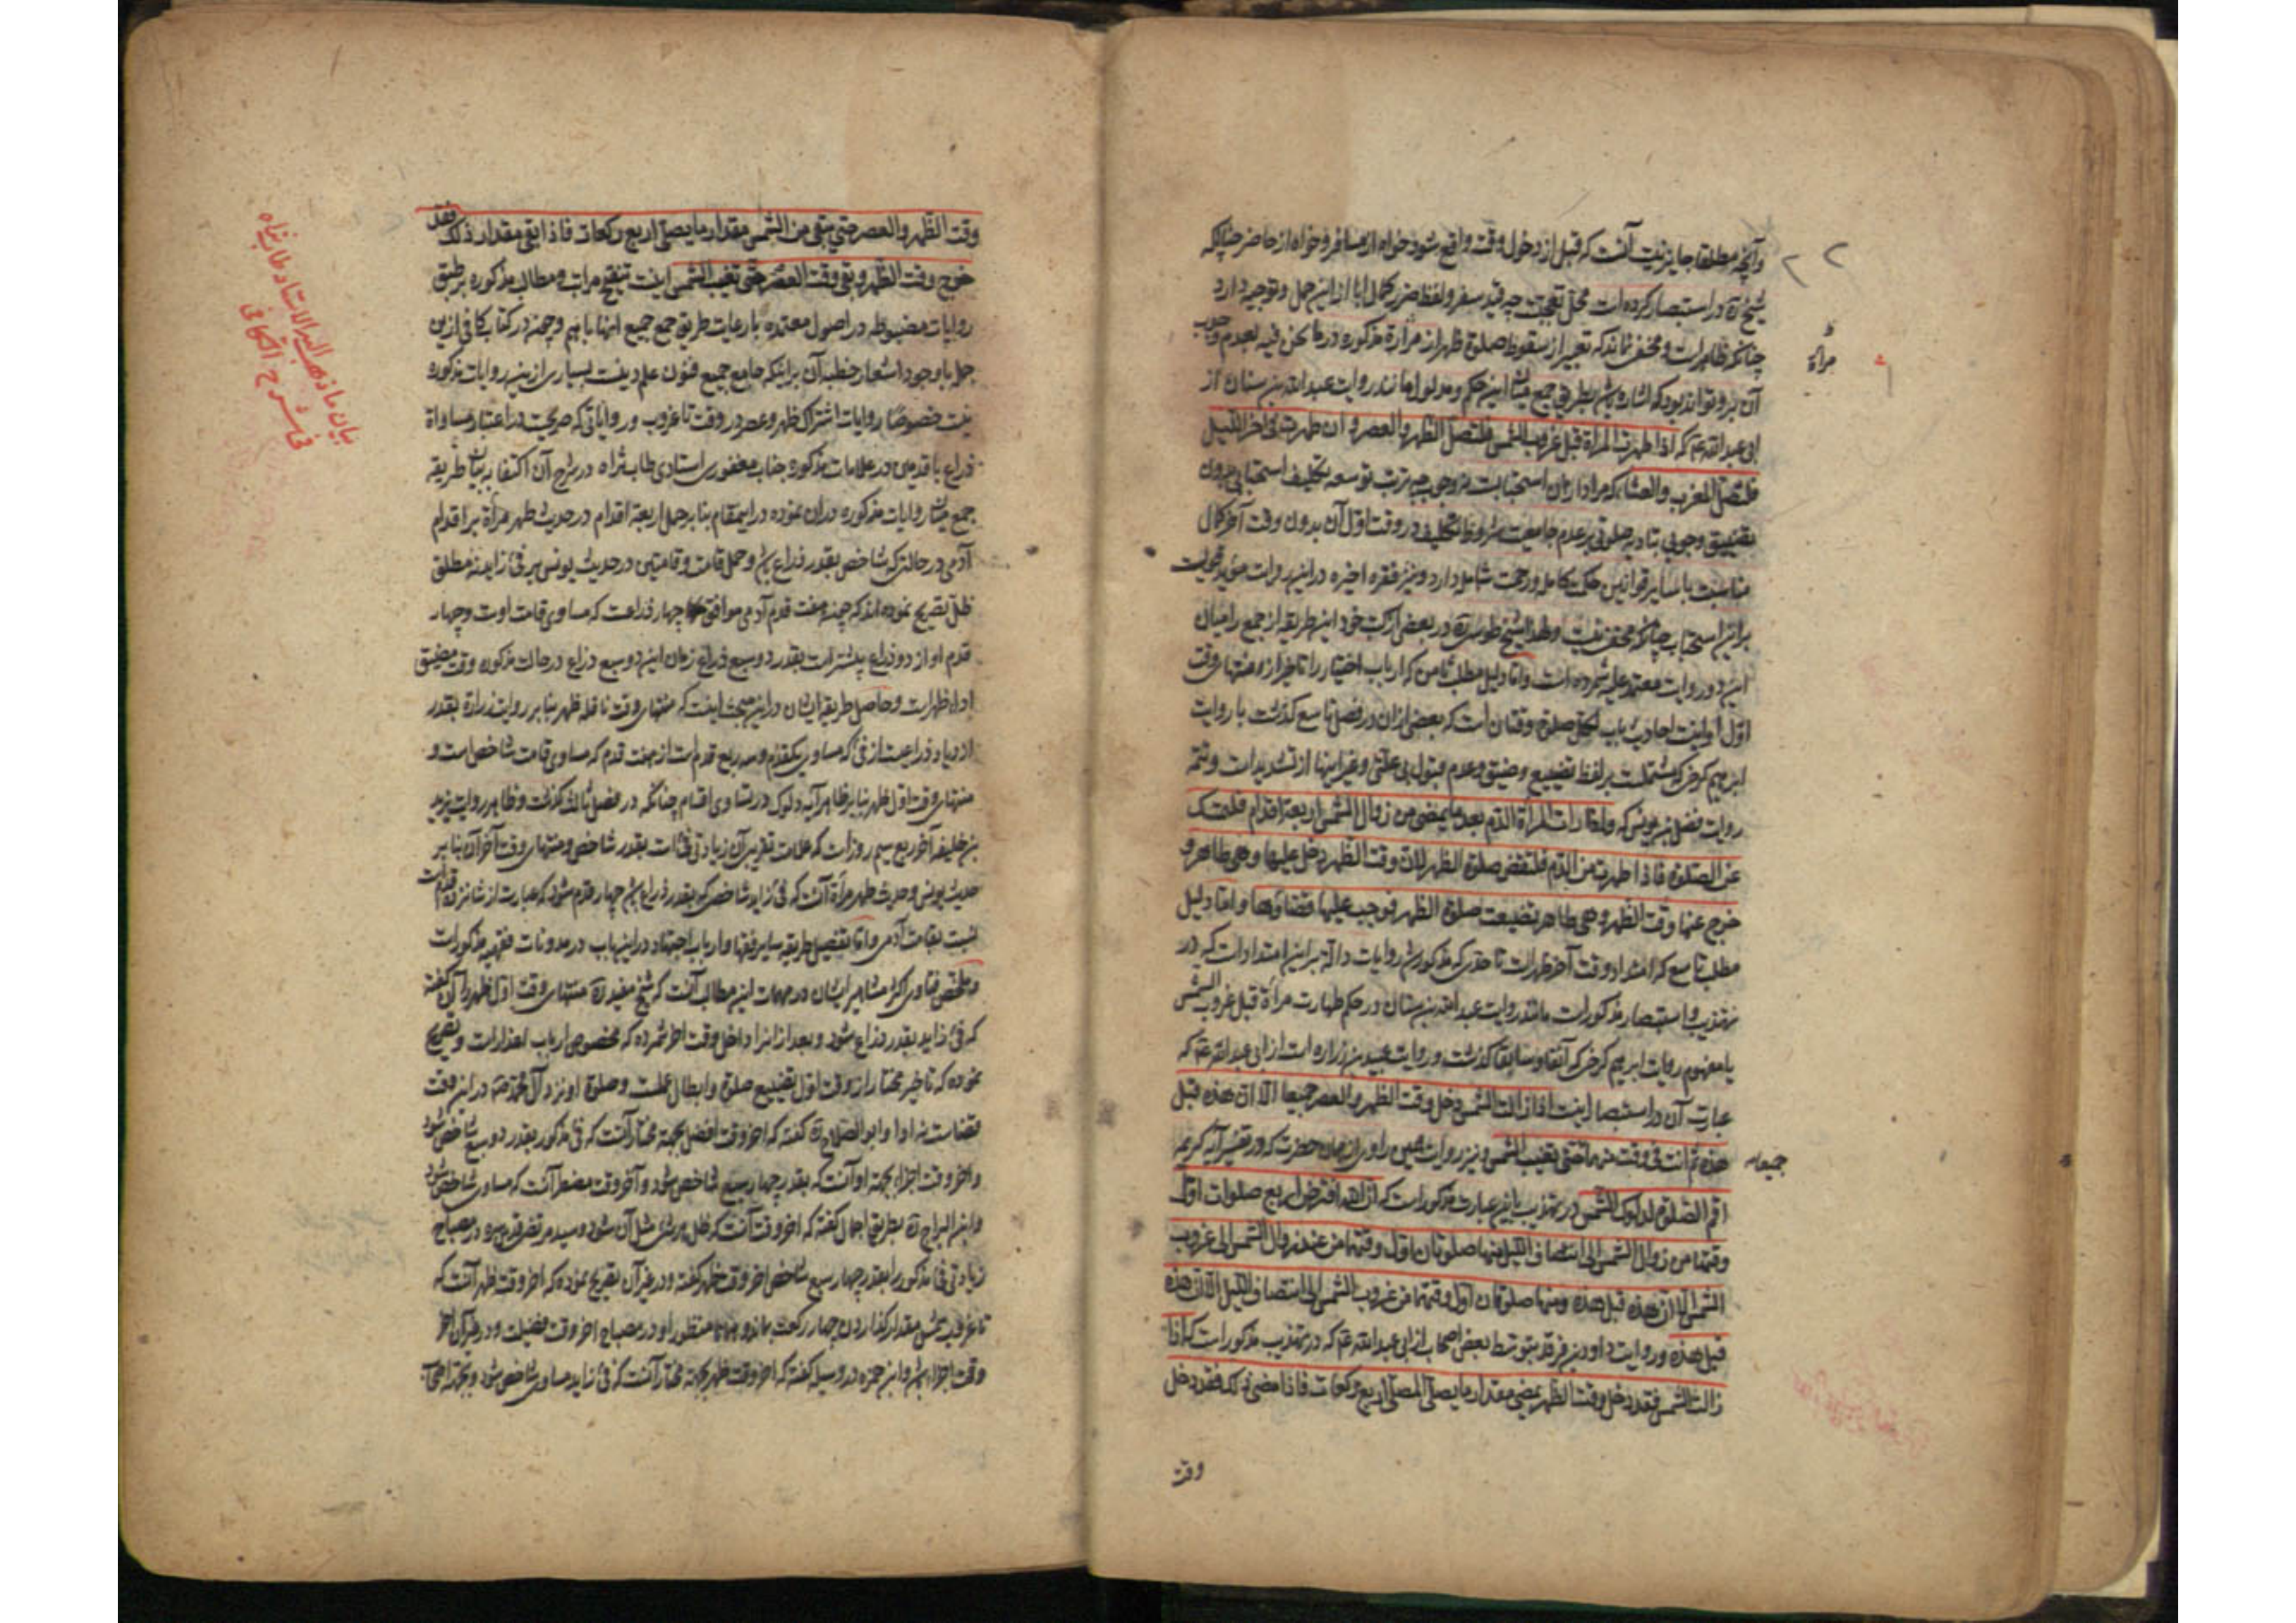 وآنچه مطلقا جایز نیست آنست که قبل از دخول وقت واقع شود خواه از مسافر و خواه از حاضر چنانکه
شیخ ره در استبصار کرده است محل تعجبست چه قید سفر و لفظ ضرر کمال ابا از این حمل و توجیه دارد
چنانکه ظاهر است و مخفی نماند که تعبیر از سقوط صلوة ظهر از مرأة مذکوره در ما نحن فیه بعدم وجوب
آن برو تواند بود که اشاره باشد بطریق جمع میان این حکم و مدلول مانند روایت عبدالله بن سنان از
ابی عبدالله عم که اذا طهرت المرأة قبل غروب الشمس فلتصل الظهر والعصر وان طهرت فی اخر اللیل
فلتصل المغرب والعشا که مراد از آن استحبابست نه وجوب چه ترتب توسعه تکلیف استحبابی بدون
تضییق وجوبی بنا بر عدم جامعیت شروط تکلیف در وقت اول آن بدون وقت آخر کمال
مناسبت با سایر قوانین حکمت کامله و رحمت شامله دارد و نیز فقره اخیره در این روایت مؤید
بر این استحباب چنانکه مخفی نیست ولهذا شیخ طوسی ره در بعضی از کتب خود این طریقه از جمع را میان
این دو روایت معتمد علیه شمرده است واما دلیل مطلب ثامن که ارباب اختیار را تاخیر از منتهای وقت
اول اولیست احادیث باب لکل صلوة وقتان است که بعضی از آن در فصل تاسع گذشت با روایت
ابرهیم کرخی که مشتملست بر لفظ تضییع و ضیق و عدم قبول بی علتی و غیر اینها از تشدیدات و تتمه
روایت فضل بن یونس که واذا رات المرأة الدم بعد ما یمضی من زوال الشمس اربعة اقدام فلتمسک
عن الصلوة فاذا طهرت من الدم فلتقض صلوة الظهر لان وقت الظهر دخل علیها وهی طاهر و
خرج عنها وقت الظهر وهی طاهر فضیعت صلوة الظهر فوجب علیها قضاؤها واما دلیل
مطلب تاسع که امتداد وقت آخر ظهر است تا حدی که مذکور شد روایات داله بر این امتداد است که در
تهذیب و استبصار مذکور است مانند روایت عبدالله بن سنان در حکم طهارت مرأة قبل غروب الشمس
با مفهوم روایت ابرهیم کرخی که آنفا و سابقا گذشت و روایت عبید بن زراره است از ابی عبدالله عم که
عبارت آن در استبصار اینست اذا زالت الشمس دخل وقت الظهر والعصر جمیعا الا ان هذه قبل
هذه ثم انت فی وقت منهما حتی تغیب الشمس و نیز روایت همین راوی از همان حضرت که در تفسیر آیه کریمه
جمیعا
اقم الصلوة لدلوک الشمس در تهذیب باین عبارت مذکور است که ان الله افترض اربع صلوات اول
وقتها من زوال الشمس الی انتصاف اللیل منها صلوتان اول وقتهما من عند زوال الشمس الی غروب
الشمس الا ان هذه قبل هذه ومنها صلوتان اول وقتهما من غروب الشمس الی انتصاف اللیل الا ان هذه
قبل هذه و روایت داود بن فرقد بتوسط بعض اصحاب از ابی عبدالله عم که در تهذیب مذکور است که اذا
زالت الشمس فقد دخل وقت الظهر حتی یمضی مقدار ما یصلی المصلی اربع رکعات فاذا مضی ذلک فقد دخل
وقت
مرأة
وقت الظهر والعصر حتی یبقی من الشمس مقدار ما یصلی اربع رکعات فاذا بقی مقدار ذلک فقد
خرج وقت الظهر وبقی وقت العصر حتی تغیب الشمس اینست تنقیح مراتب و مطالب مذکوره بر طبق
روایات مضبوطه در اصول معتمده با رعایت طریق جمع جمیع اینها با هم و چون در کتاب کافی از این
جمله با وجود اشعار خطبه آن بر اینکه جامع جمیع فنون علم دینست بسیاری از این روایات مذکوره
نیست خصوصا روایات اشتراک ظهر و عصر در وقت تا غروب و روایاتی که صریحست در اعتبار مساواة
ذراع یا قدمی در علامات مذکوره جناب مغفوری استادی طاب ثراه در شرح آن اکتفا به بیان طریقه
جمع میان روایات مذکوره در آن نموده در اینمقام بنا بر حمل اربعة اقدام در حدیث طهر مرأة بر اقدام
آدمی در حالتی که شاخص بقدر ذراع باشد و حمل قامت و قامتین در حدیث یونس بر فئ زاید نه مطلق
ظل تصریح نموده اند که چون هفت قدم آدمی موافق چهار ذراعست که مساوی قامت اوست و چهار
قدم او از دو ذراع بیشتر است بقدر دو سبع ذراع زمان این دو سبع ذراع در حال مذکور وقت مضیق
اداء ظهر است و حاصل طریقه ایشان در این مبحث اینست که منتهای وقت نافله ظهر بنا بر روایت زراره بقدر
ازدیاد ذراعیست از فئ که مساوی یکقدم و سه ربع قدم است از هفت قدم که مساوی قامت شاخص است و
منتهای وقت اول ظهر بنا بر ظاهر آیه دلوک در تساوی اقسام چنانکه در فصل ثالث گذشت و ظاهر روایت یزید
بن خلیفه آخر ربع سیم روز است که علامت تقریبی آن زیادتی فئ است بقدر شاخص و منتهای وقت آخر آن بنا بر
حدیث یونس و حدیث طهر مرأة آنست که فئ زاید شاخصی که بقدر ذراع باشد چهار قدم شود که عبارت از شانزده قدم است
نسبت بقامت آدمی واما تفصیل طریقه سایر فقها و ارباب اجتهاد در این باب در مدونات فقهیه مذکور است
و ملخص فتاوی اکثر مشاهیر ایشان در مهمات این مطالب آنست که شیخ مفید ره منتهای وقت اول ظهر را آن گفته
که فئ زاید بقدر ذراع شود و بعد از انرا داخل وقت اخر شمرده که مخصوص ارباب اعذار است و تصریح
نموده که تاخیر مختار از وقت اول تضییع صلوة و ابطال عملست و صلوة او نزد آل محمد صم در این وقت
قضاست نه ادا و ابو الصلاح ره گفته که اخر وقت افضل بجهة مختار آنست که فئ مذکور بقدر دو سبع شاخص شود
و اخر وقت اجزاء بجهة او آنست که بقدر چهار سبع شاخص شود و آخر وقت مضطر آنست که مساوی شاخص شود
و ابن البراج ره بطریق اجمال گفته که اخر وقت آنست که ظل هر شئ مثل آن شود و سید مرتضی قدس سره در مصباح
زیادتی فئ مذکور را بقدر چهار سبع شاخص اخر وقت ظهر گفته و در غیر آن تصریح نموده که اخر وقت ظهر آنست که
تا غروب شمس مقدار گذاردن چهار رکعت بماند و همانا منظور او در مصباح اخر وقت فضیلت و در غیر آن اخر
وقت اجزاء باشد و ابن حمزه در وسیله گفته که اخر وقت ظهر بجهة مختار آنست که فئ زاید مساوی شاخص شود و بجهة اصحاب
بیان ما ذهب الیه الاستاد طاب ثراه
فی شرح الکافی